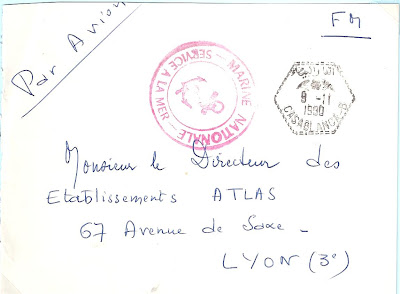 Par Avion
FM
MARINE NATIONALE
SERVICE A LA MER
9 - 11
CASABLANCA
Monsieur le Directeur des
Etablissements ATLAS
67 Avenue de Saxe -
LYON (3e)